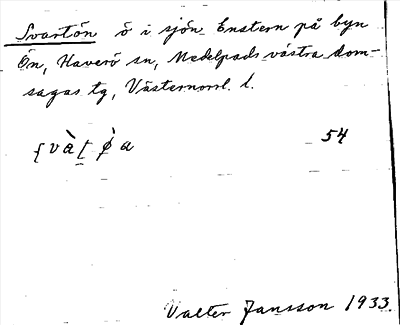 Svartön ö i sjön Enstern på byn
Ön, Haverö sn, Medelpads västra dom-
sagas tg, Västernorrl. l.
54
Valter Jansson 1933.